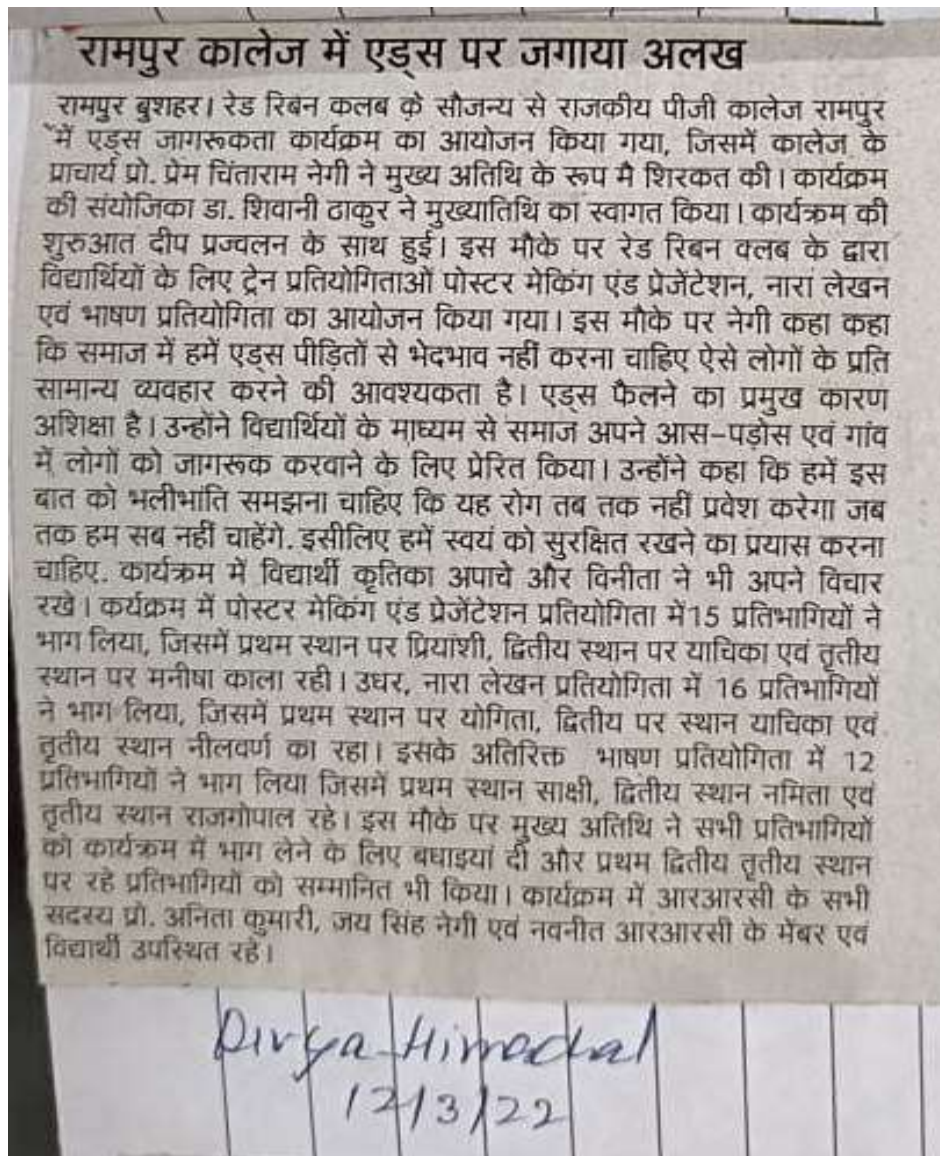 रामपुर कालेज में एड्स पर जगाया अलख
रामपुर बुशहर। रेड रिबन कलब के सौजन्य से राजकीय पीजी कालेज रामपुर
में एड्स जागरूकता कार्यक्रम का आयोजन किया गया, जिसमें कालेज के
प्राचार्य प्रो. प्रेम चिंताराम नेगी ने मुख्य अतिथि के रूप मै शिरकत की। कार्यक्रम
की संयोजिका डा. शिवानी ठाकुर ने मुख्यातिथि का स्वागत किया। कार्यक्रम की
शुरुआत दीप प्रज्वलन के साथ हुई। इस मौके पर रेड रिबन क्लब के द्वारा
विद्यार्थियों के लिए ट्रेन प्रतियोगिताओं पोस्टर मेकिंग एंड प्रेजेंटेशन, नारा लेखन
एवं भाषण प्रतियोगिता का आयोजन किया गया। इस मौके पर नेगी कहा कहा
कि समाज में हमें एड्स पीड़ितों से भेदभाव नहीं करना चाहिए ऐसे लोगों के प्रति
सामान्य व्यवहार करने की आवश्यकता है। एड्स फैलने का प्रमुख कारण
अशिक्षा है। उन्होंने विद्यार्थियों के माध्यम से समाज अपने आस-पड़ोस एवं गांव
में लोगों को जागरूक करवाने के लिए प्रेरित किया। उन्होंने कहा कि हमें इस
बात को भलीभांति समझना चाहिए कि यह रोग तब तक नहीं प्रवेश करेगा जब
तक हम सब नहीं चाहेंगे. इसीलिए हमें स्वयं को सुरक्षित रखने का प्रयास करना
चाहिए. कार्यक्रम में विद्यार्थी कृतिका अपाचे और विनीता ने भी अपने विचार
रखे। कर्यक्रम में पोस्टर मेकिंग एंड प्रेजेंटेशन प्रतियोगिता में15 प्रतिभागियों ने
भाग लिया, जिसमें प्रथम स्थान पर प्रियांशी, द्वितीय स्थान पर याचिका एवं तृतीय
स्थान पर मनीषा काला रही। उधर, नारा लेखन प्रतियोगिता में 16 प्रतिभागियों
ने भाग लिया, जिसमें प्रथम स्थान पर योगिता, द्वितीय पर स्थान याचिका एवं
तृतीय स्थान नीलवर्ण का रहा। इसके अतिरिक्त भाषण प्रतियोगिता में 12
प्रतिभागियों ने भाग लिया जिसमें प्रथम स्थान साक्षी, द्वितीय स्थान नमिता एवं
तृतीय स्थान राजगोपाल रहे। इस मौके पर मुख्य अतिथि ने सभी प्रतिभागियों
को कार्यक्रम में भाग लेने के लिए बधाइयां दी और प्रथम द्वितीय तृतीय स्थान
पर रहे प्रतिभागियों को सम्मानित भी किया। कार्यक्रम में आरआरसी के सभी
सदस्य प्रो. अनिता कुमारी, जय सिंह नेगी एवं नवनीत आरआरसी के मेंबर एवं
विद्यार्थी उपस्थित रहे।
Divya Himachal
12/3/22